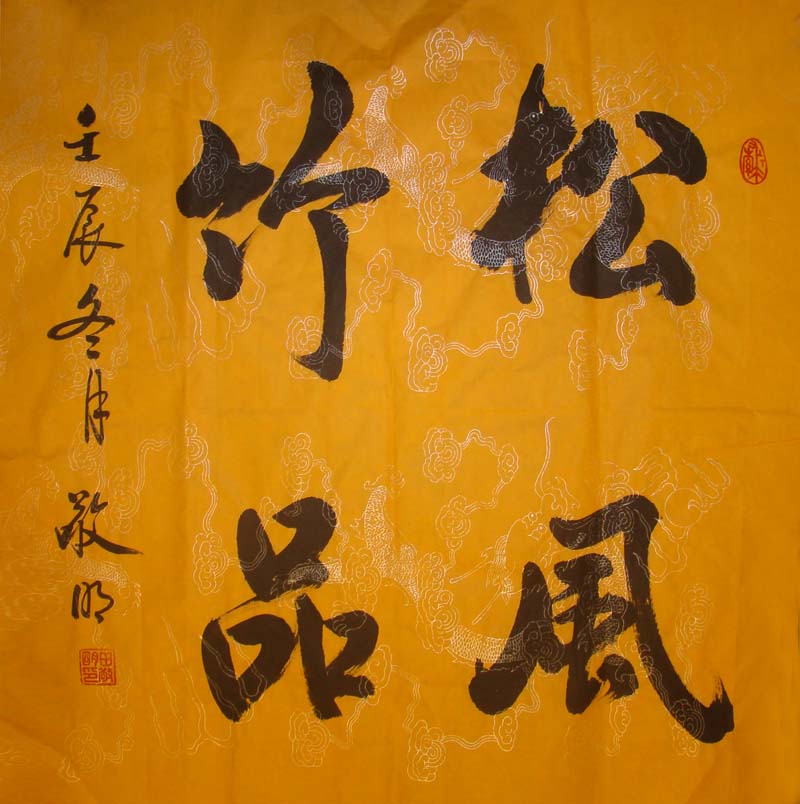 松風
竹品
壬辰冬月 敬明